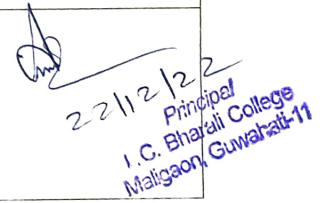 22/12/22
Principal
I.C. Bharali College
Maligaon, Guwahati-11